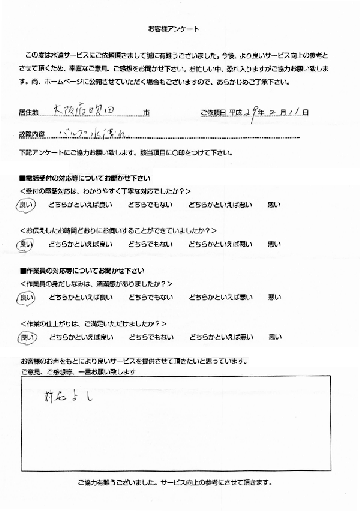 お客様アンケート
この度は水道サービスにご依頼頂きまして誠に有難うございました。今後、より良いサービス向上の参考と
させて頂くため、率直なご意見、ご感想をお聞かせ下さい。お忙しい中、恐れ入りますがご協力お願い致しま
す。尚、ホームページに公開させていただく場合もございますので、あらかじめご了承下さい。
居住地 大阪府吹田 市 ご依頼日 平成 29年 2月 11日
故障内容 バルブ水漏れ
下記アンケートにご協力お願い致します、該当項目に○印をつけて下さい。
■電話受付の対応等についてお聞かせ下さい
<受付の電話対応は、わかりやすく丁寧な対応でしたか?>
良い どちらかといえば良い どちらでもない どちらかといえば悪い 悪い
<お伝えしたお時間どおりにお伺いすることができていましたか?>
良い どちらかといえば良い どちらでもない どちらかといえば悪い 悪い
■作業員の対応等についてお聞かせ下さい
<作業員の身だしなみは、清潔感がありましたか?>
良い どちらかといえば良い どちらでもない どちらかといえば悪い 悪い
<作業の仕上がりは、ご満足いただけましたか?>
良い どちらかといえば良い どちらでもない どちらかといえば悪い 悪い
お客様のお声をもとにより良いサービスを提供させて頂きたいと思っています。
ご意見、ご感想等、一言お願い致します
対応よし
ご協力有難うございました。サービス向上の参考にさせて頂きます。